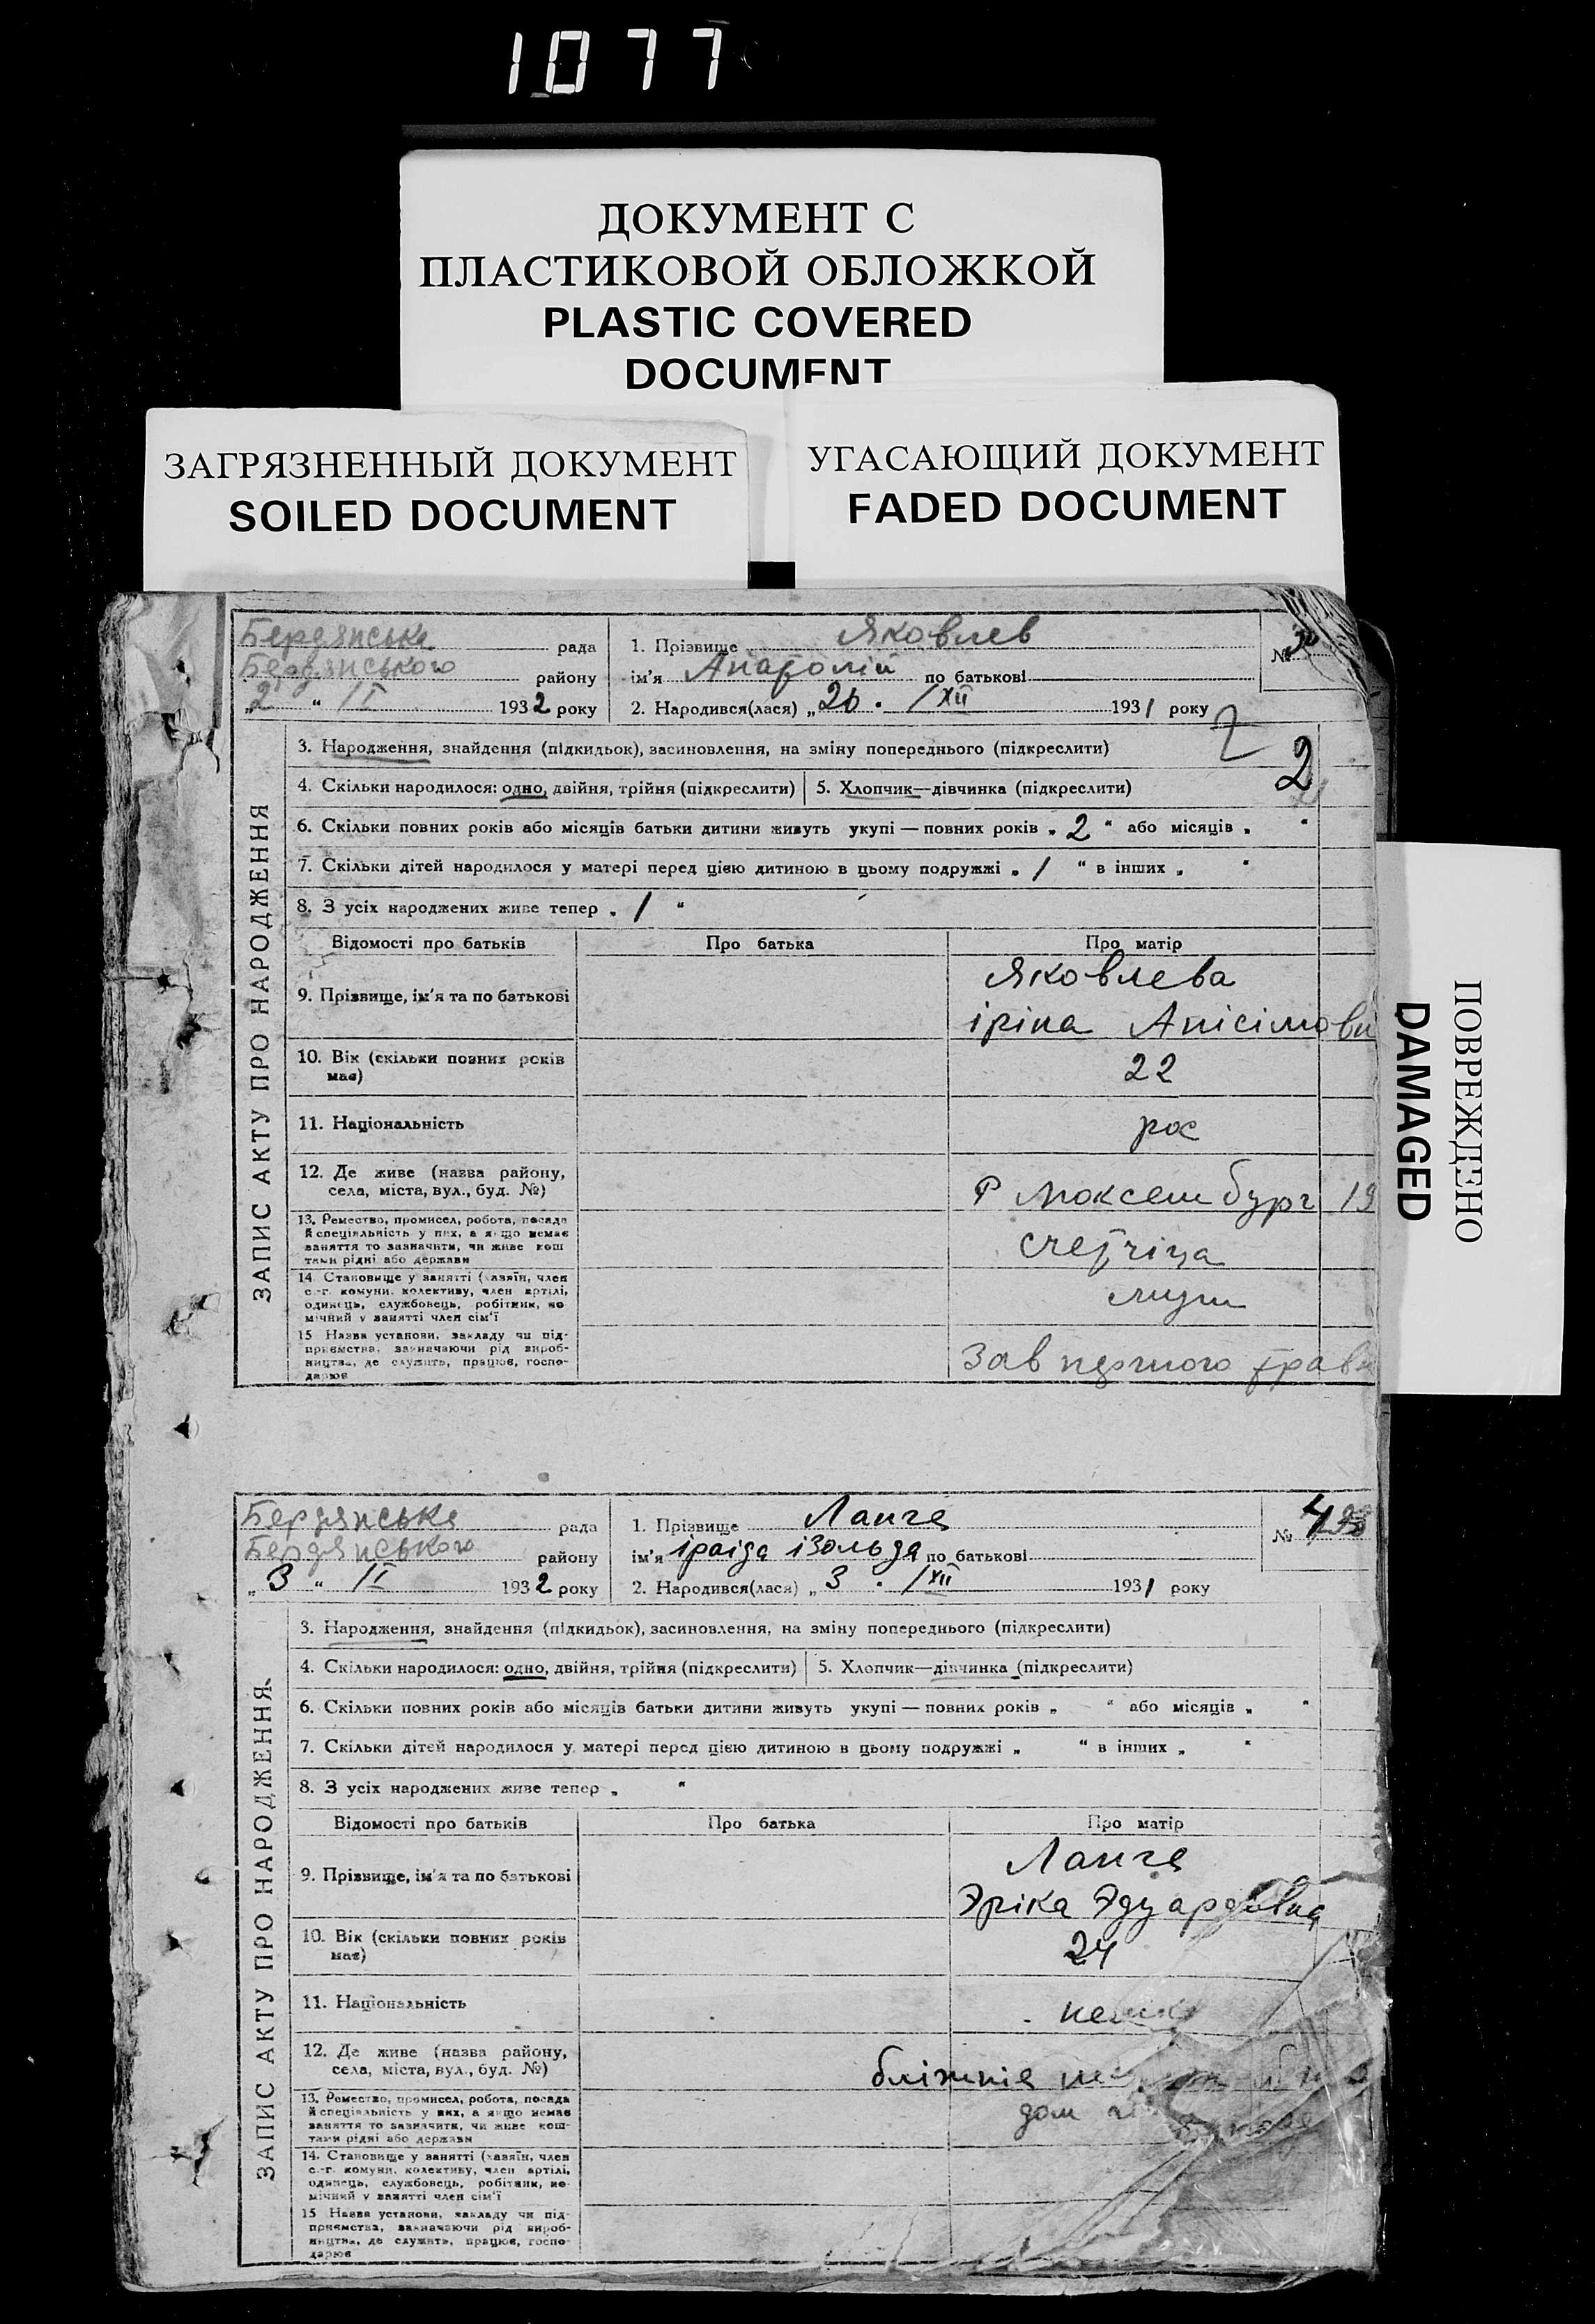 1077
ДОКУМЕНТ С
ПЛАСТИКОВОЙ ОБЛОЖКОЙ
PLASTIC COVERED
DOCUMENT
ЗАГРЯЗНЕННЫЙ ДОКУМЕНТ
SOILED DOCUMENT
УГАСАЮЩИЙ ДОКУМЕНТ
FADED DOCUMENT
ПОВРЕЖДЕНО
DAMAGED
Бердянська рада
Бердянського району
„2“ II 1932 року
1. Прізвище Яковлев
ім'я Анатолій по батькові
2. Народився(лася) „26. /XII 1931 року
№
2
ЗАПИС АКТУ ПРО НАРОДЖЕННЯ
3. Народження, знайдення (підкидьок), засиновлення, на зміну попереднього (підкреслити)
4. Скільки народилося: одно, двійня, трійня (підкреслити) 5. Хлопчик—дівчинка (підкреслити)
6. Скільки повних років або місяців батьки дитини живуть укупі — повних років „ 2 “ або місяців „ “
7. Скільки дітей народилося у матері перед цією дитиною в цьому подружжі „ / “ в інших „ “
8. З усіх народжених живе тепер „ / “
Відомості про батьків Про батька Про матір
9. Прізвище, ім'я та по батькові
Яковлева
іріна Анісімовн
10. Вік (скільки повних років має)
22
11. Національність
рос
12. Де живе (назва району,
села, міста, вул., буд. №)
Р Люксембург 19
13. Ремество, промисел, робота, посада
й спеціяльність у них, а якщо немає
заняття то зазначити, чи живе кош-
тами рідні або держави
счетчіца
14 Становище у занятті (хазяїн, член
с.-г. комуни, колективу, член артілі,
одинець, службовець, робітник, по-
мічний у занятті член сім'ї
служ
15 Назва установи, закладу чи під-
приємства, зазначаючи рід вироб-
ництва, де служить, працює, госпо-
дарює
Зав першого трав
Бердянська рада
Бердянського району
„3“ II 1932 року
1. Прізвище Ланге
ім'я іраіда ізольда по батькові
2. Народився(лася) „3. /XII 1931 року
№ 4
ЗАПИС АКТУ ПРО НАРОДЖЕННЯ
3. Народження, знайдення (підкидьок), засиновлення, на зміну попереднього (підкреслити)
4. Скільки народилося: одно, двійня, трійня (підкреслити) 5. Хлопчик—дівчинка (підкреслити)
6. Скільки повних років або місяців батьки дитини живуть укупі — повних років „ “ або місяців „ “
7. Скільки дітей народилося у матері перед цією дитиною в цьому подружжі „ “ в інших „ “
8. З усіх народжених живе тепер „ “
Відомості про батьків Про батька Про матір
9. Прізвище, ім'я та по батькові
Ланге
Эріка Эдуардовна
10. Вік (скільки повних років
має)
24
11. Національність
12. Де живе (назва району,
села, міста, вул., буд. №)
бліжнія
13. Ремество, промисел, робота, посада
й спеціяльність у них, а якщо немає
заняття то зазначити, чи живе кош-
тами рідні або держави
дом
14. Становище у занятті (хазяїн, член
с.-г. комуни, колективу, член артілі,
одинець, службовець, робітник, по-
мічний у занятті член сім'ї
15 Назва установи, закладу чи під-
приємства, зазначаючи рід вироб-
ництва, де служить, працює, госпо-
дарює